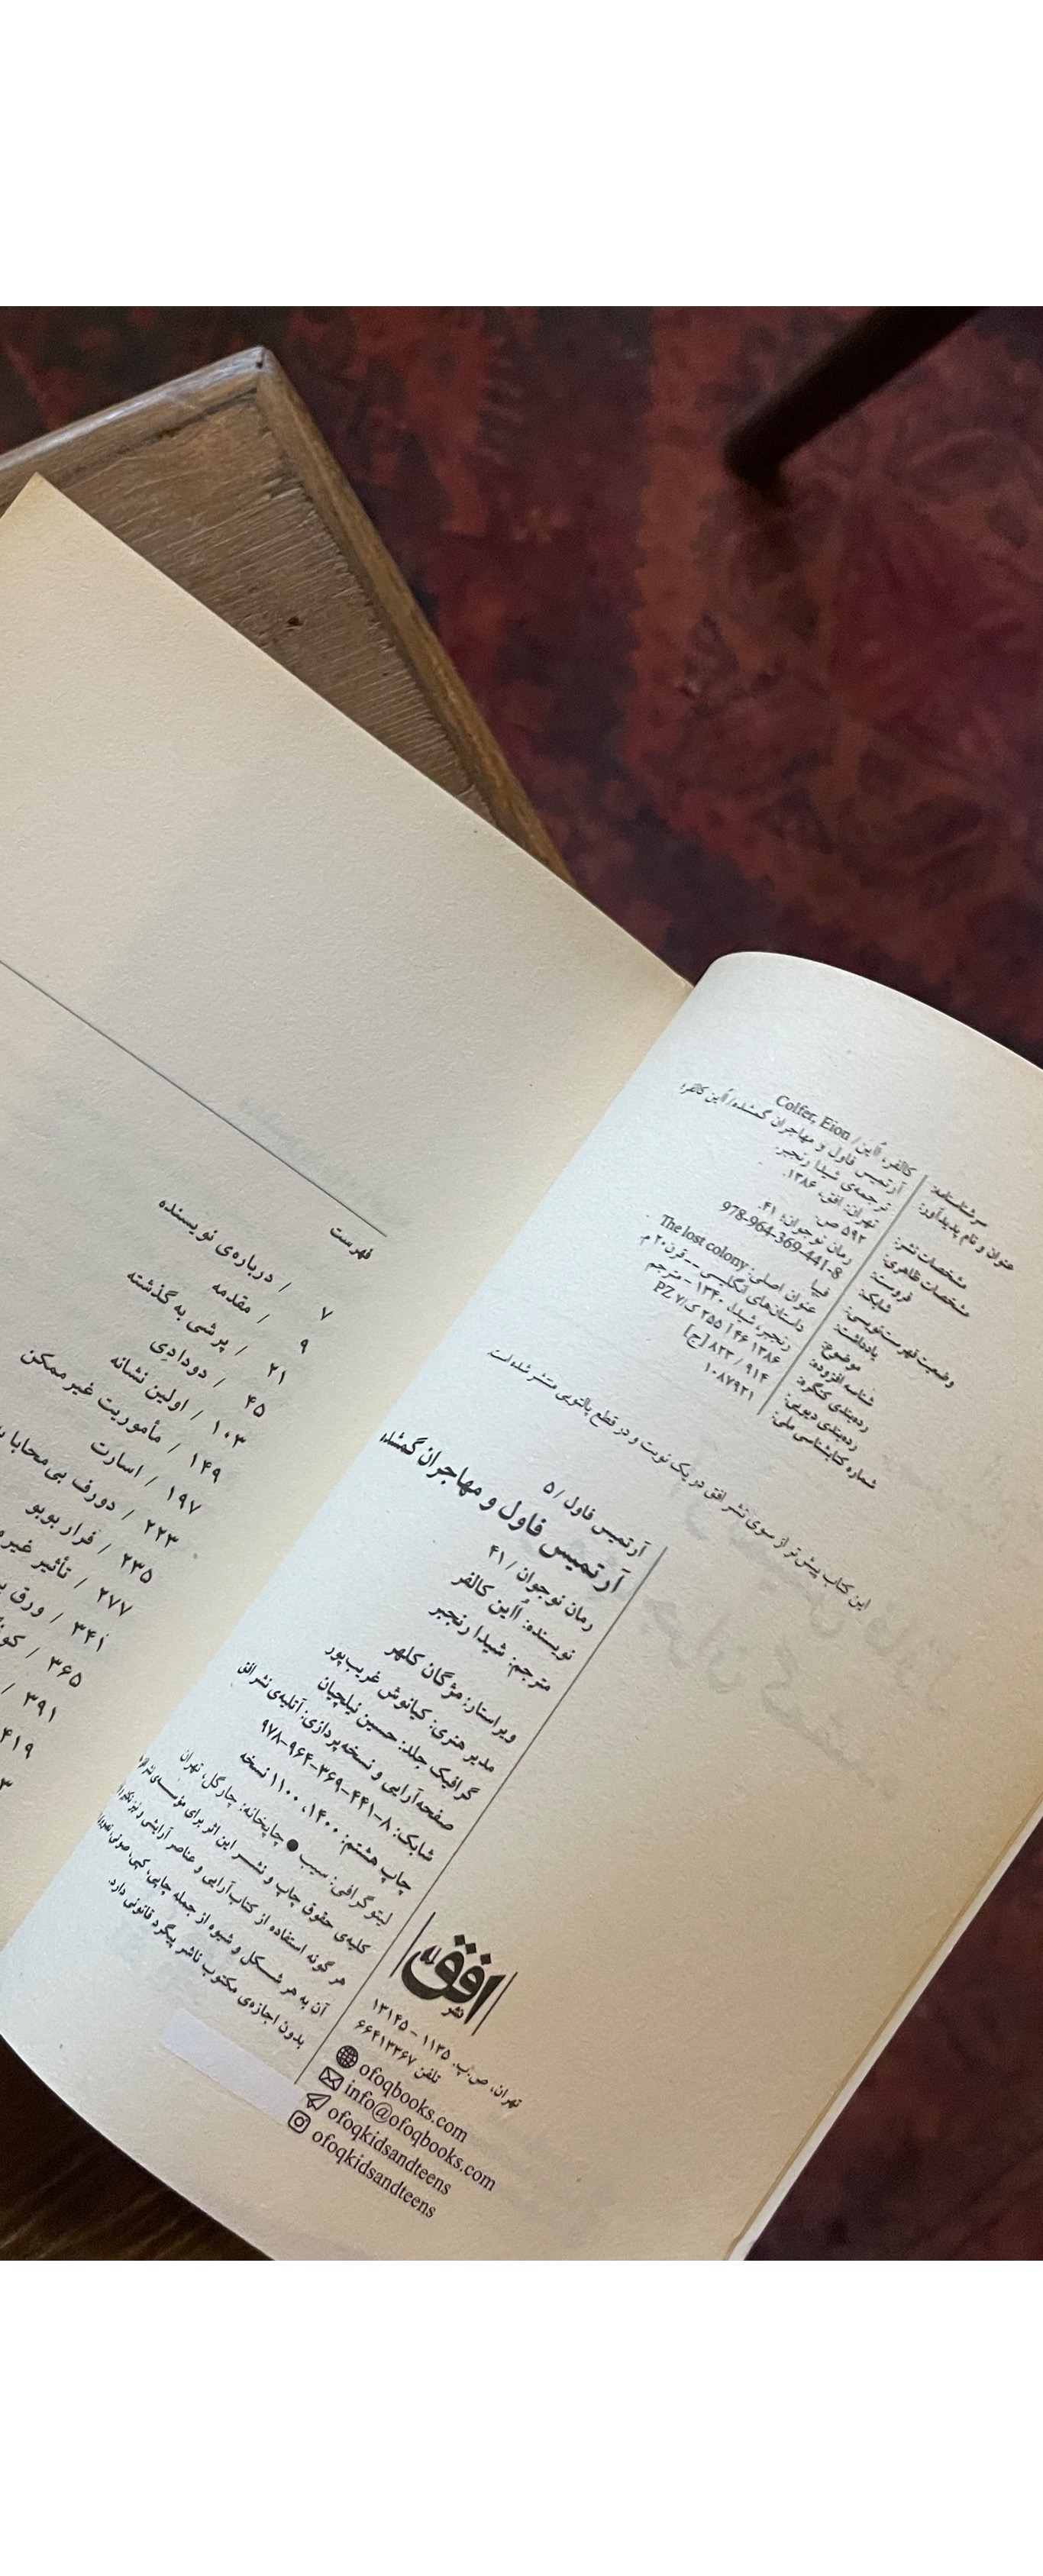 سرشناسه: کالفر، اُاین / Colfer, Eion
عنوان و نام پدیدآور: آرتمیس فاول و مهاجران گمشده/ اُاین کالفر؛
ترجمه‌ی شیدا رنجبر.
مشخصات نشر: تهران: افق، ۱۳۸۶.
مشخصات ظاهری: ۵۹۲ ص.
فروست: رمان نوجوان؛ ۴۱.
شابک: 978-964-369-441-8
وضعیت فهرست‌نویسی: فیپا
یادداشت: عنوان اصلی: The lost colony
موضوع: داستان‌های انگلیسی -- قرن ۲۰ م
شناسه افزوده: رنجبر، شیدا، ۱۳۴۰ - مترجم
رده‌بندی کنگره: ۱۳۸۶ ۴۶ آ ۲۵۵ ک/ PZ ۷
رده‌بندی دیویی: ۸۲۳ / ۹۱۴ [ج]
شماره کتابشناسی ملی: ۱۰۸۷۹۳۱
این کتاب پیش‌تر از سوی نشر افق در یک نوبت و در قطع پالتویی منتشر شده است.
آرتمیس فاول / ۵
آرتمیس فاول و مهاجران گمشده
رمان نوجوان / ۴۱
نویسنده: اُاین کالفر
مترجم: شیدا رنجبر
ویراستار: مژگان کلهر
مدیر هنری: کیانوش غریب‌پور
گرافیک جلد: حسین نیلچیان
صفحه‌آرایی و نسخه‌پردازی: آتلیه‌ی نشر افق
شابک: ۸-۴۴۱-۳۶۹-۹۶۴-۹۷۸
چاپ هشتم: ۱۴۰۰، ۱۱۰۰ نسخه
لیتوگرافی: سیب ● چاپخانه: چارگل، تهران
کلیه‌ی حقوق چاپ و نشر این اثر برای مؤسسه‌ی نشر افق
هر گونه استفاده از کتاب‌آرایی و عناصر آرایشی
آن به هر شکل و شیوه از جمله چاپی، کپی، صوتی، تصویری
بدون اجازه‌ی مکتوب ناشر پیگرد قانونی دارد.
نشر افق
تهران، ص.پ. ۱۱۳۵ - ۱۳۱۴۵
تلفن ۶۶۴۱۳۳۶۷
ofoqbooks.com
info@ofoqbooks.com
ofoqkidsandteens
ofoqkidsandteens
فهرست
۷ / درباره‌ی نویسنده
۹ / مقدمه
۲۱ / پرشی به گذشته
۴۵ / دودادِی
۱۰۳ / اولین نشانه
۱۴۹ / مأموریت غیرممکن
۱۹۷ / اسارت
۲۲۳ / دورف بی‌محابا
۲۳۵ / فرار بوبو
۲۷۷ / تأثیر
۳۴۱ / ورق
۳۶۵ /
۳۹۱ /
۴۱۹